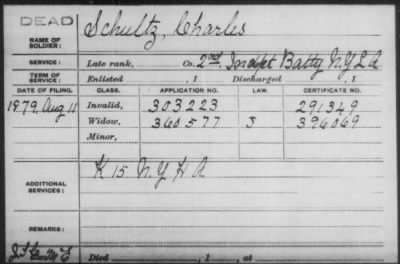 DEAD
NAME OF SOLDIER: Schultz, Charles
SERVICE: Late rank, Co. 2nd Indpt Batty N.Y.L.A
TERM OF SERVICE: Enlisted , 1 Discharged , 1
DATE OF FILING. CLASS. APPLICATION NO. LAW. CERTIFICATE NO.
1879, Aug 11 Invalid, 303223 291349
Widow, 360577 396069
Minor,
ADDITIONAL SERVICES: K 15 N.Y H A
REMARKS:
Died , 1 , at